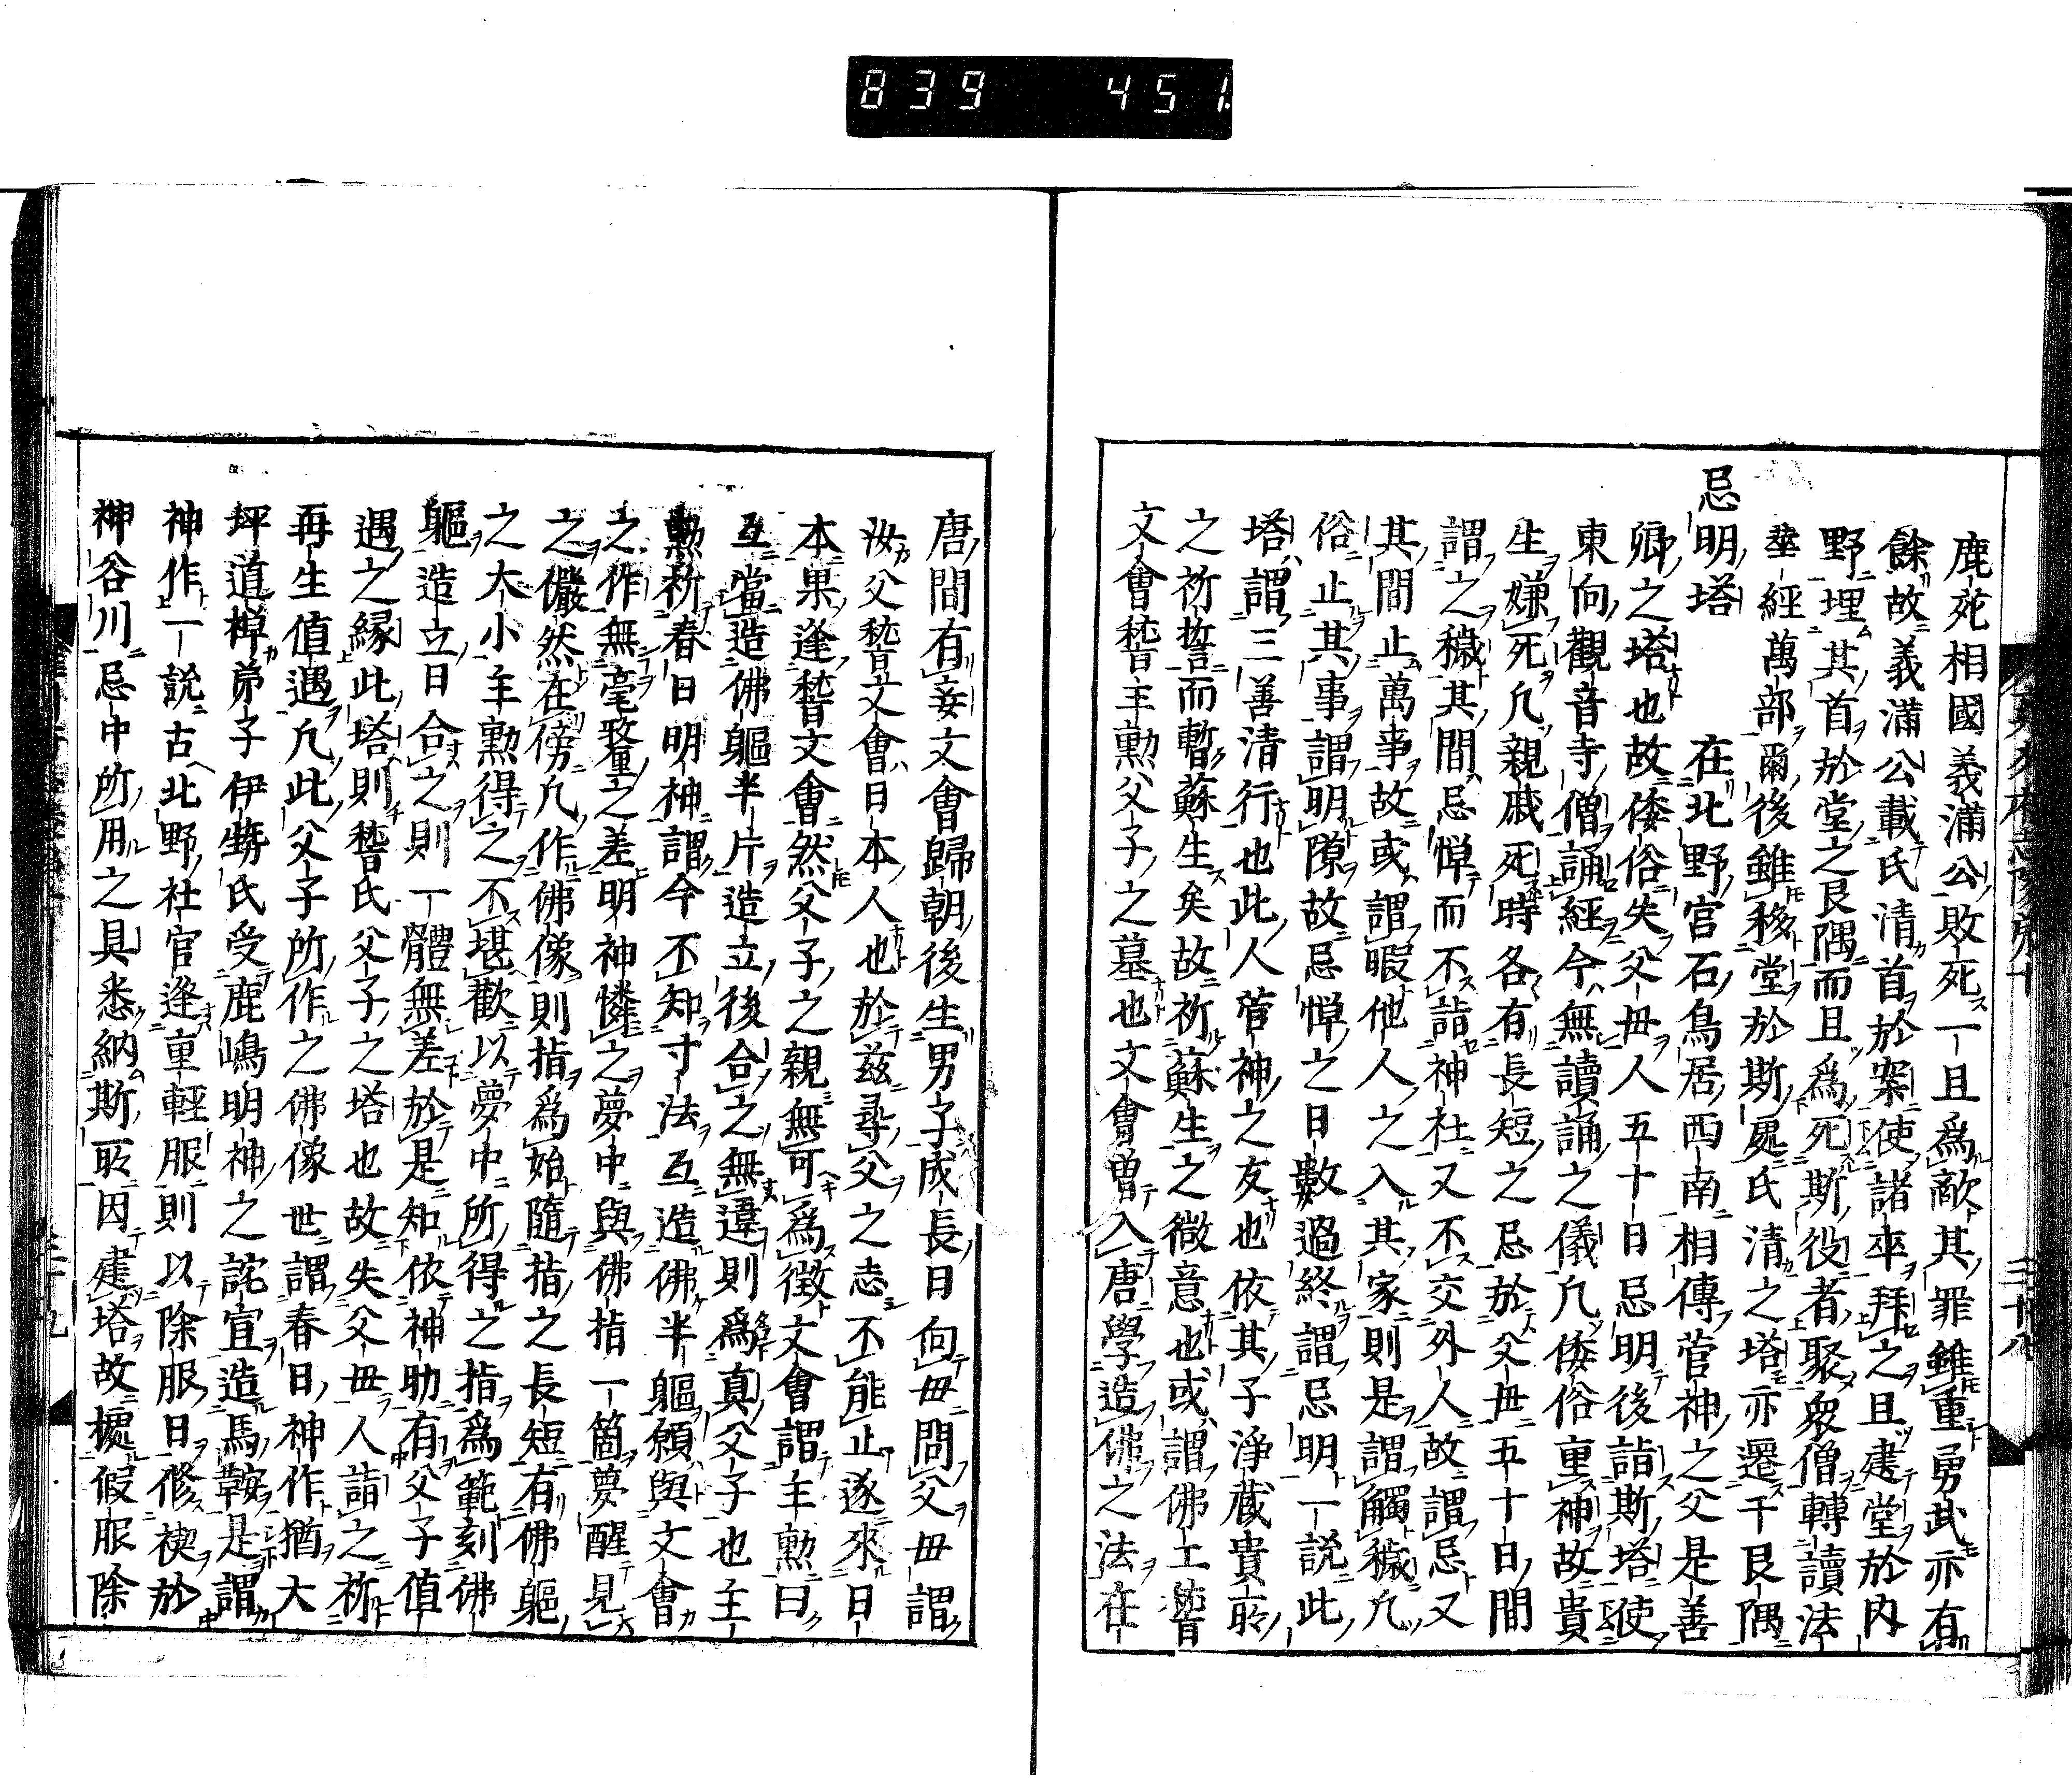 839 451
鹿苑相國義滿公敗死一旦爲敵其罪雖重勇武亦有
餘故義滿公載氏清首於案使諸卒拜之且建堂於内
野埋其首於堂之艮隅而且爲死斯役者聚衆僧轉讀法
華經萬部爾後雖移堂於斯處氏清之塔亦遷干艮隅
忌明塔 在北野宮石鳥居西南相傳菅神之父是善
卿之塔也故倭俗失父毋人五十日忌明後詣斯塔使
東向觀音寺僧誦經今無讀誦之儀凡倭俗重神故貴
生嫌死凡親戚死時各有長短之忌於父毋五十日間
謂之穢其間忌憚而不詣神社又不交外人故謂忌又
其間止萬事故或謂暇他人之入其家則是謂觸穢凡
俗止其事謂明隙故忌憚之日數過終謂忌明一説此
塔謂三善清行也此人菅神之友也依其子淨藏貴所
之祈誓而暫蘇生矣故祈蘇生之微意也或謂佛工誓
文會誓主勲父子之墓也文會曽入唐學造佛之法在
唐間有妾文會歸朝後生男子成長日向毋問父毋謂
汝父誓文會日本人也於茲尋父之志不能止遂來日
本果逢誓文會然父子之親無可爲徴文會謂主勲曰
互當造佛軀半片造立後合之無違則爲真父子也主
勲祈春日明神謂今不知寸法互造佛半軀願與文會
之作無毫釐之差明神憐之夢中與佛指一箇夢醒見
之儼然在傍凡作佛像則指爲始隨指之長短有佛軀
之大小主勲得之不堪歡以夢中所得之指爲範刻佛
軀造立日合之則一體無差於是知依神助有父子値
遇之縁此塔則誓氏父子之塔也故失父毋人詣之祈
再生値遇凡此父子所作之佛像世謂春日神作猶大
坪道棹弟子伊勢氏受鹿嶋明神之詫宣造馬鞍是謂
神作一説古北野社官逢重輕服則以除服日修禊於
神谷川忌中所用之具悉納斯所因建塔故擬假服除